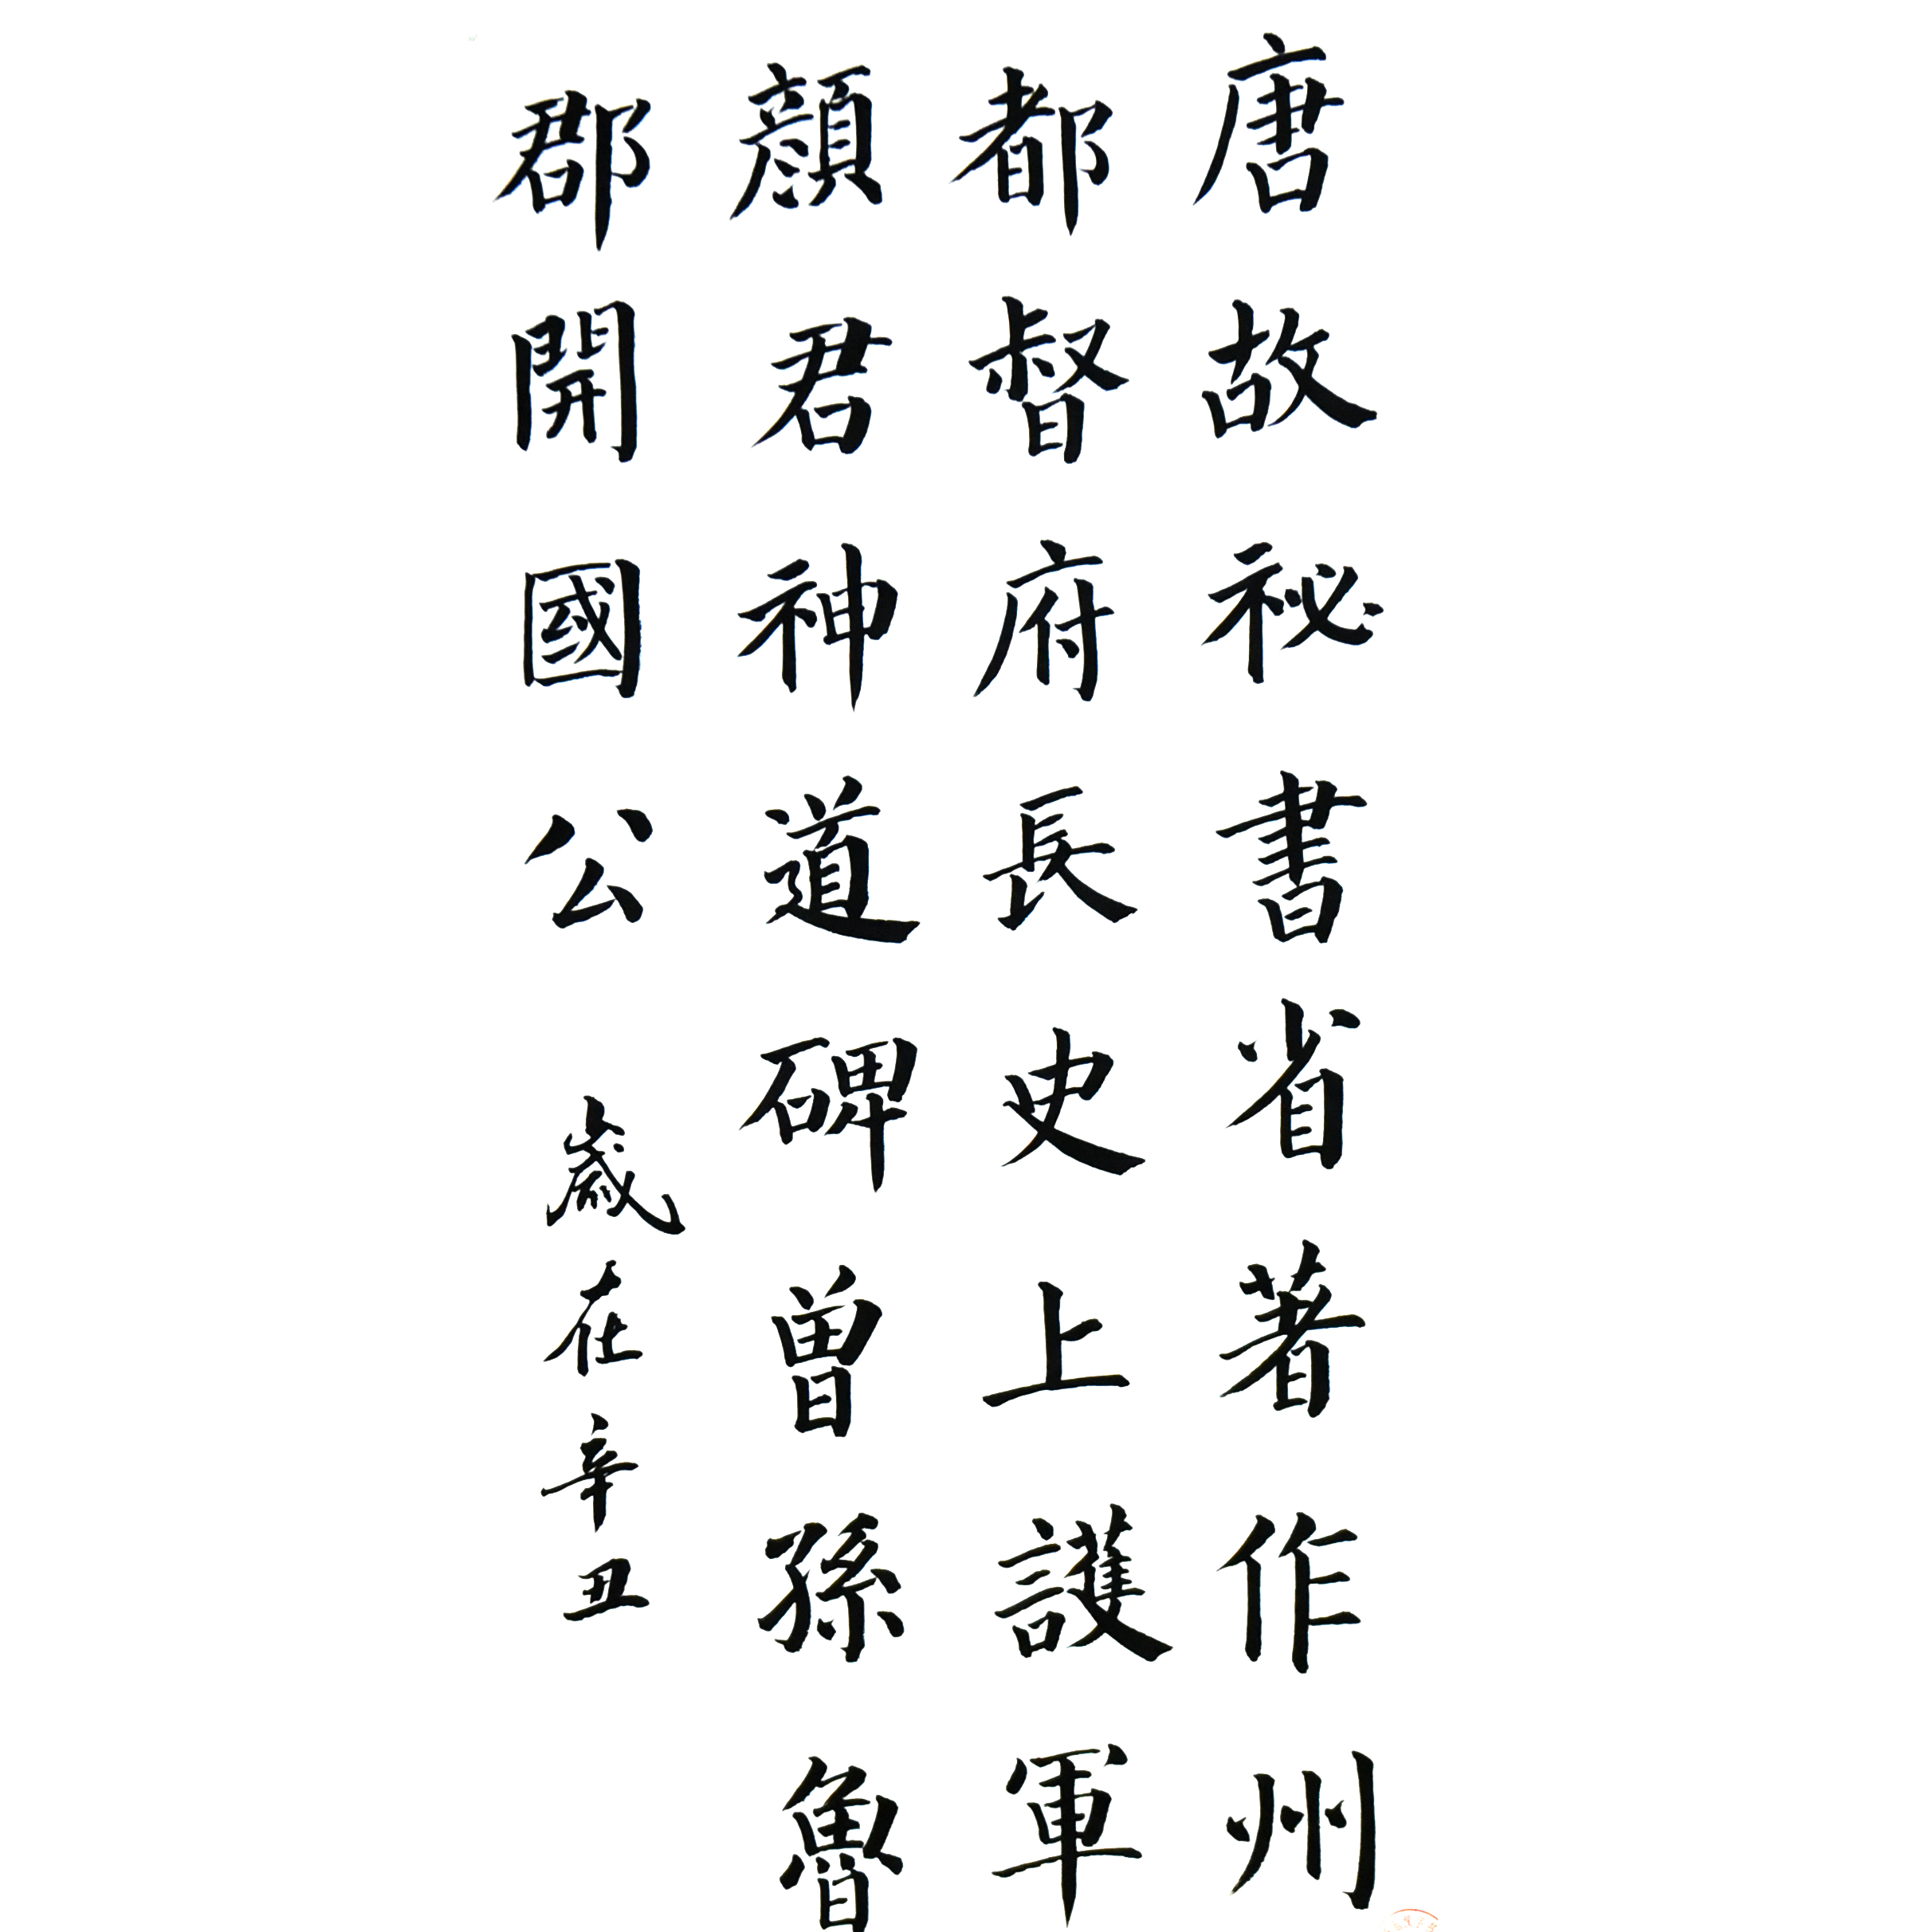 唐故祕書省著作州
都督府長史上護軍
顏君神道碑曾孫魯
郡開國公
歲在辛丑